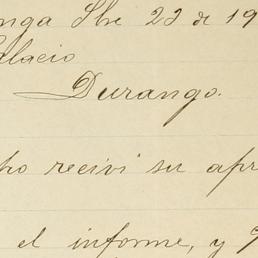 nga Sbre 22 de 19
alacio
Durango.
ho recivi su apr
el informe, y